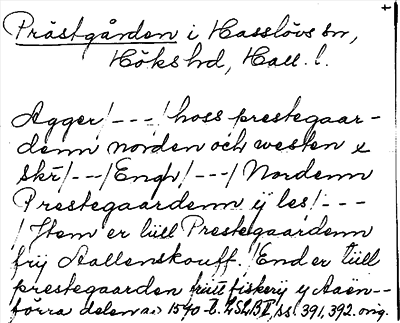 Prästgården i Hasslövs sn,
Hökshd, Hall. l.
Agger /---/ hoss prestegaar-
denn norden och westen x
skr /---/ Engh /---/ Nordenn
Prestegaardenn y les /---
/ Item er till Prestegaardenn
frij Aallenskouff. / End er till
prestegaarden friitt fiskerij y Aaën--
förra delen av 1540-t. LSLB I, ss. 391, 392. orig.